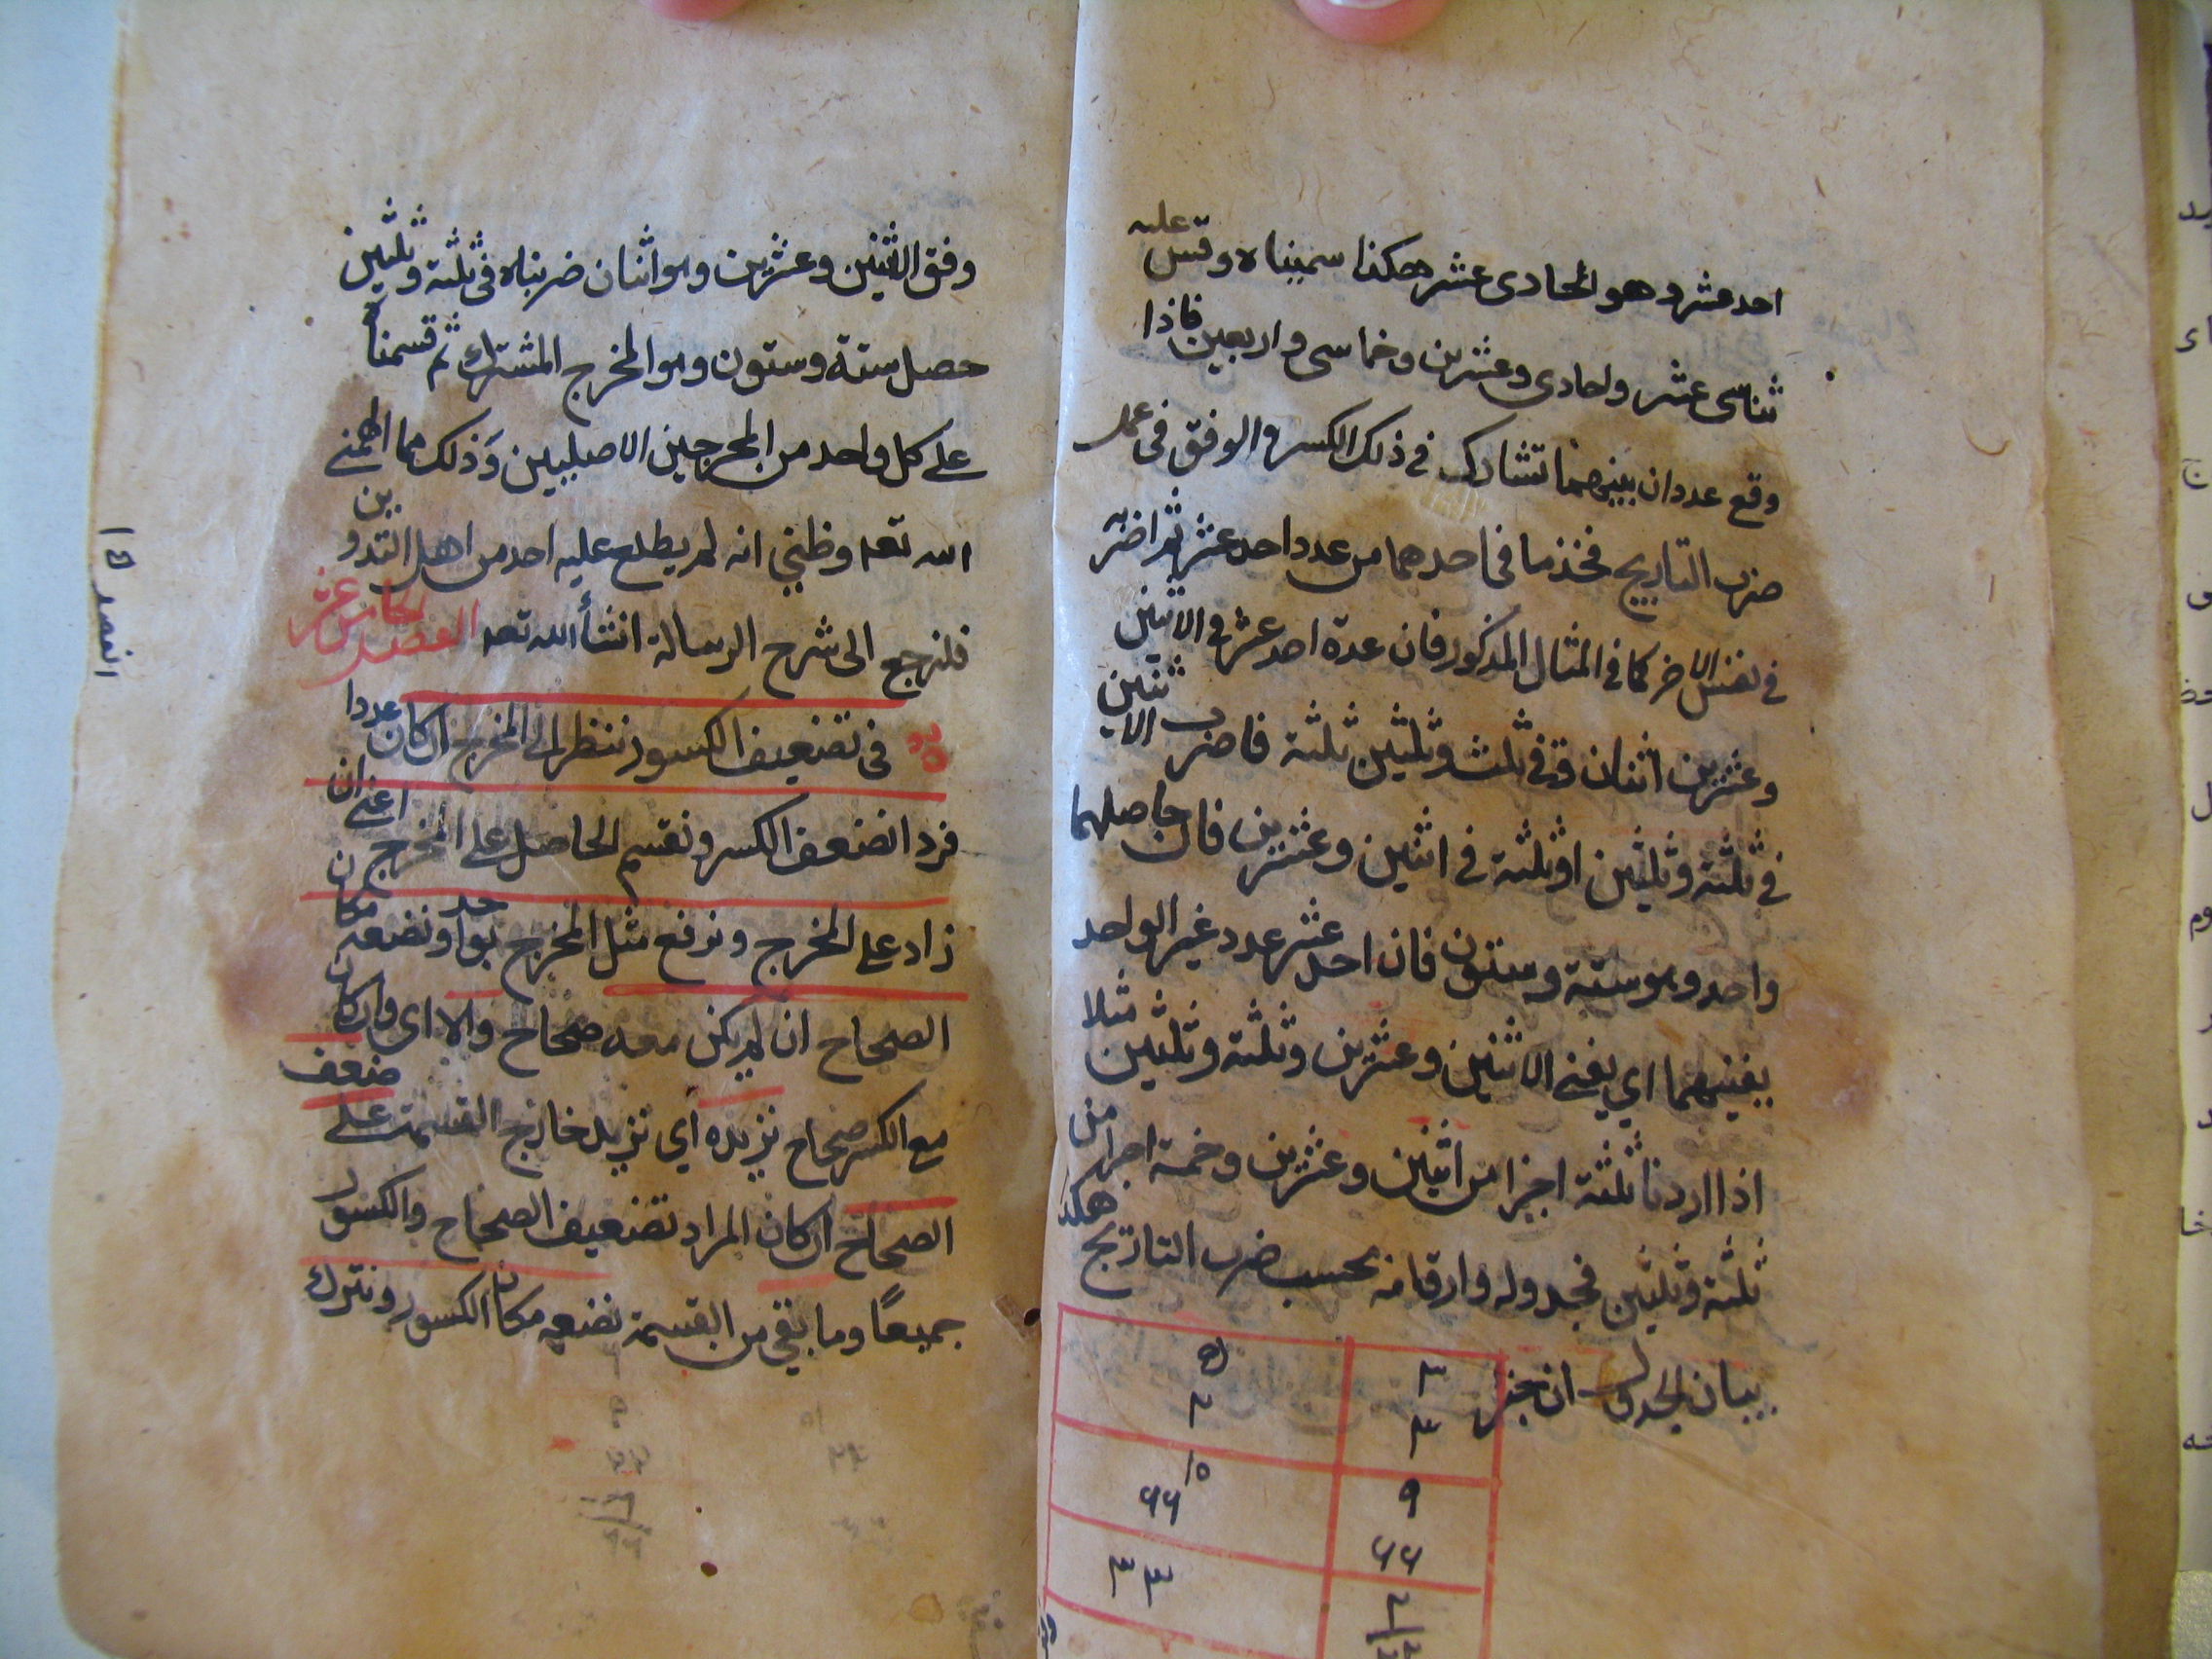 احد عشر وهو الحادى عشر هكذا سميناه وقس عليه
ثناىى عشر وحادى وعشرين وخماسى واربعين فاذا
وقع عددان بينهما تشارك فى ذلك الكسر والوفق فى عمل
ضرب التاريج فخذ ما فى احدهما من عدد احد عشر ثم اضربه
فى نفس الاخر كما فى المثال المذكور فان عدة احد عشر فى الاثنين
وعشرين اثنان وفى ثلث وثلثين ثلثة فاضرب الاثنين
فى ثلثة وثلثين او ثلثة فى اثنين وعشرين فان حاصلهما
واحد وهو ستة وستون فان احد عشر عدد غير الواحد
يفنيهما اي يفنى الاثنين وعشرين وثلثة وثلثين مثلا
اذا اردنا ثلثة اجزا من اثنين وعشرين وخمسة اجزا من
ثلثة وثلثين فجدوله وارقامه بحسب ضرب التاريج هكذا
بيان الجدول ان نجز
٣ ۵
٣ ٢
٩ ١۵
۶۶ ۶۶
٣٣
وفق اثنين وعشرين وهو اثنان ضربناه فى ثلثة وثلثين
حصل ستة وستون وهو المخرج المشترك ثم قسمناه
على كل واحد من المخرجين الاصليين وذلك مما الهمنى
الله تعه وظني انه لم يطلع عليه احد من اهل التدوين
فلنرجع الى شرح الرسالة انشأ الله تعه الفصل الخامس عشر
فى تضعيف الكسور ننظر الى المخرج ان كان عددا
فردا نضعف الكسر ونقسم الحاصل على المخرج اعنى ان
زاد على المخرج ونرفع مثل المخرج بواحد ونضعه مكان
الصحاح ان لم يكن معه صحاح والا اى وان كان
مع الكسر صحاح نزيده اى نزيد خارج القسمة على ضعف
الصحاح ان كان المراد تضعيف الصحاح والكسور
جميعًا وما بقي من القسمة نضعه مكان الكسور ونترك
الفصل ١۵